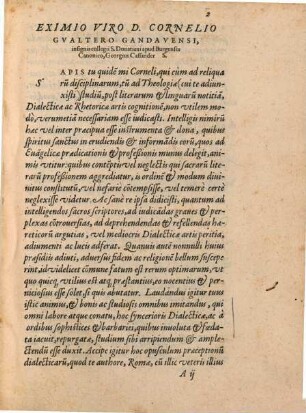 2
EXIMIO VIRO D. CORNELIO
GVALTERO GANDAVENSI,
insignis collegii S. Donatiani apud Burgensis
Canonico, Georgius Cassander S.
SAPIS tu quidē mi Corneli, qui cum ad reliqua
rū disciplinarum, tū ad Theologiæ, cui te adiun
xisti studiū, post literarum & linguarū notitiā,
Dialecticæ ac Rhetoricæ artis cognitionē, non vtilem mo
dò, verumetiā necessariam esse iudicasti. Intelligis nimirū
hæc vel inter præcipua esse instrumenta & dona, quibus
spiritus sanctus in erudiendis & informādis eorū, quos ad
Euāgelicæ prædicationis & professionis munus delegit, ani
mis vtitur: quibus contēptis vel neglectis qui sacrarū lite
rarū professionem aggrediatur, is ordinē & modum diui
nitus constitutū, vel nefariè cōtempsisse, vel temerè certè
neglexisse videtur. Ac sanè re ipsa didicisti, quantum ad
intelligendos sacros scriptores, ad indicādas graues & per
plexas cōtrouersias, ad deprehendendas & refellendas hæ
reticorū argutias, vel mediocris Dialecticæ artis peritia,
adiumenti ac lucis adferat. Quanuis autē nonnulli huius
præsidii adiuti, aduersus fidem ac religionē bellum suscepe
rint, id videlicet cōmune fatum est rerum optimarum, vt
quo quicq, vtilius est atq, præstantius, eo nocentius & per
niciosius esse soleat, si quis abutatur. Laudandus igitur tuus
istic animus, & bonis ac studiosis omnibus imitandus, qui
omni labore atque conatu, hoc syncerioris Dialecticæ, ac à
sordibus sophisticis & barbaricis, quibus inuoluta & fœda
ta iacuit, repurgatæ, studium sibi arripiendum & am-
plectendū esse duxit. Accipe igitur hoc opusculum præceptionū
dialecticarū, quod te authore, Romæ, cū illic veteris illius
A ij